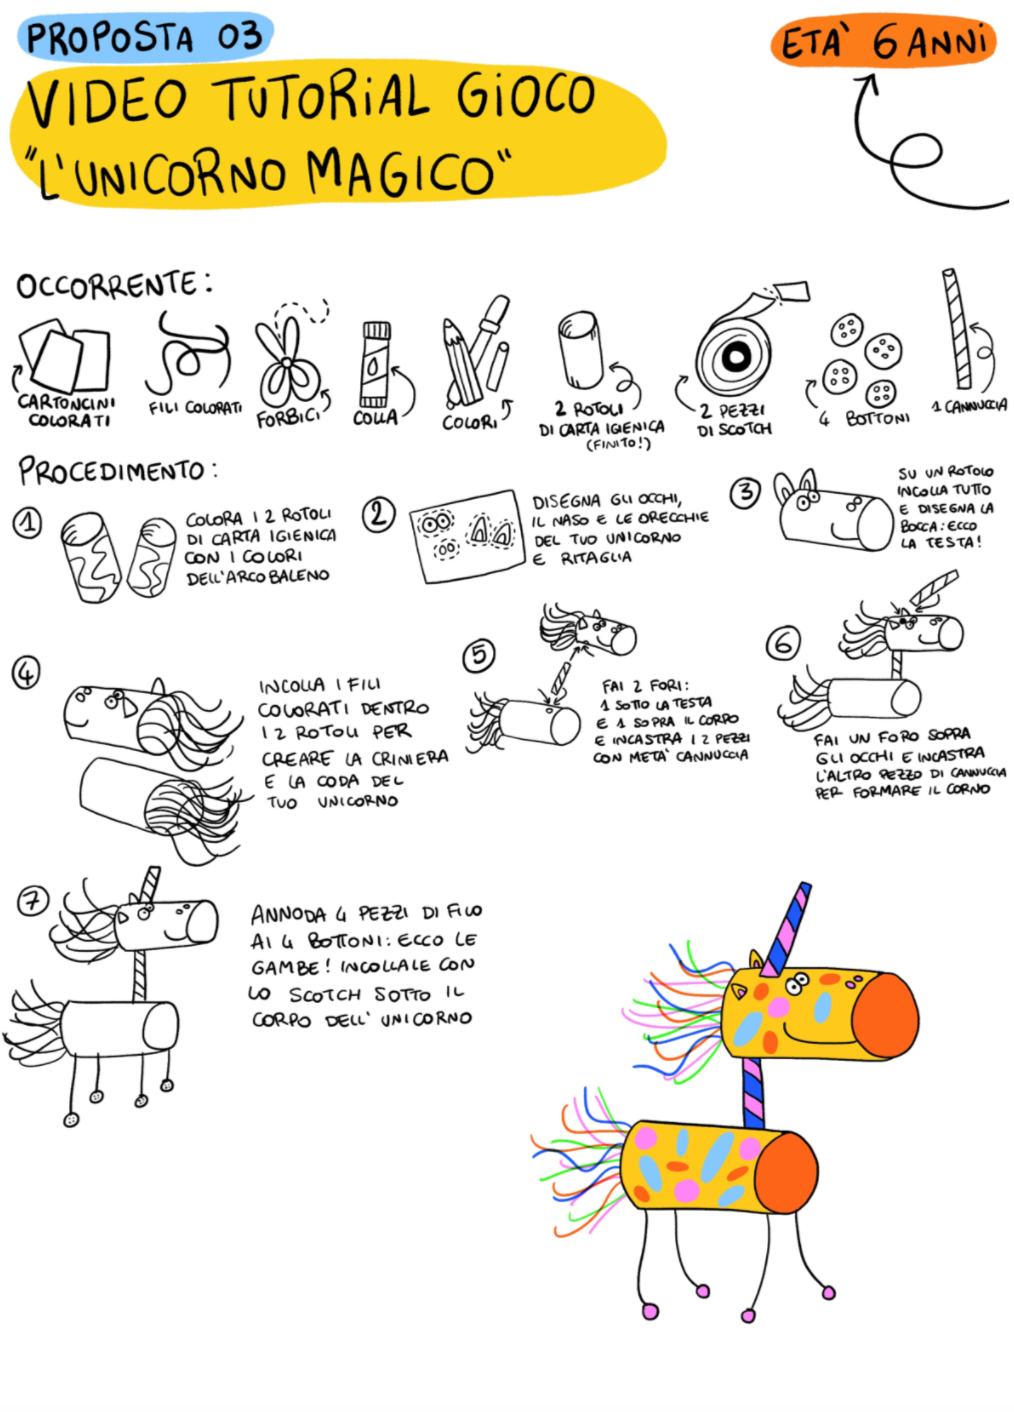 PROPOSTA 03
ETA' 6 ANNi
VIDEO TUTORiAL GiOCO
"L'UNICORNO MAGICO"
OCCORRENTE:
CARTONCINI
COLORATI
FILI COLORATI
FORBICI
COLLA
COLORI
2 ROTOLI
DI CARTA IGIENICA
(FINITO!)
2 PEZZI
DI SCOTCH
4 BOTTONI
1 CANNUCCIA
PROCEDIMENTO:
1
COLORA I 2 ROTOLI
DI CARTA IGIENICA
CON I COLORI
DELL'ARCOBALENO
2
DISEGNA GLI OCCHI,
IL NASO E LE ORECCHIE
DEL TUO UNICORNO
E RITAGLIA
3
SU UN ROTOLO
INCOLLA TUTTO
E DISEGNA LA
BOCCA: ECCO
LA TESTA!
4
INCOLLA I FILI
COLORATI DENTRO
I 2 ROTOLI PER
CREARE LA CRINIERA
E LA CODA DEL
TUO UNICORNO
5
FAI 2 FORI:
1 SOTTO LA TESTA
E 1 SOPRA IL CORPO
E INCASTRA I 2 PEZZI
CON META' CANNUCCIA
6
FAI UN FORO SOPRA
GLI OCCHI E INCASTRA
L'ALTRO PEZZO DI CANNUCCIA
PER FORMARE IL CORNO
7
ANNODA 4 PEZZI DI FILO
AI 4 BOTTONI: ECCO LE
GAMBE! INCOLLALE CON
LO SCOTCH SOTTO IL
CORPO DELL' UNICORNO